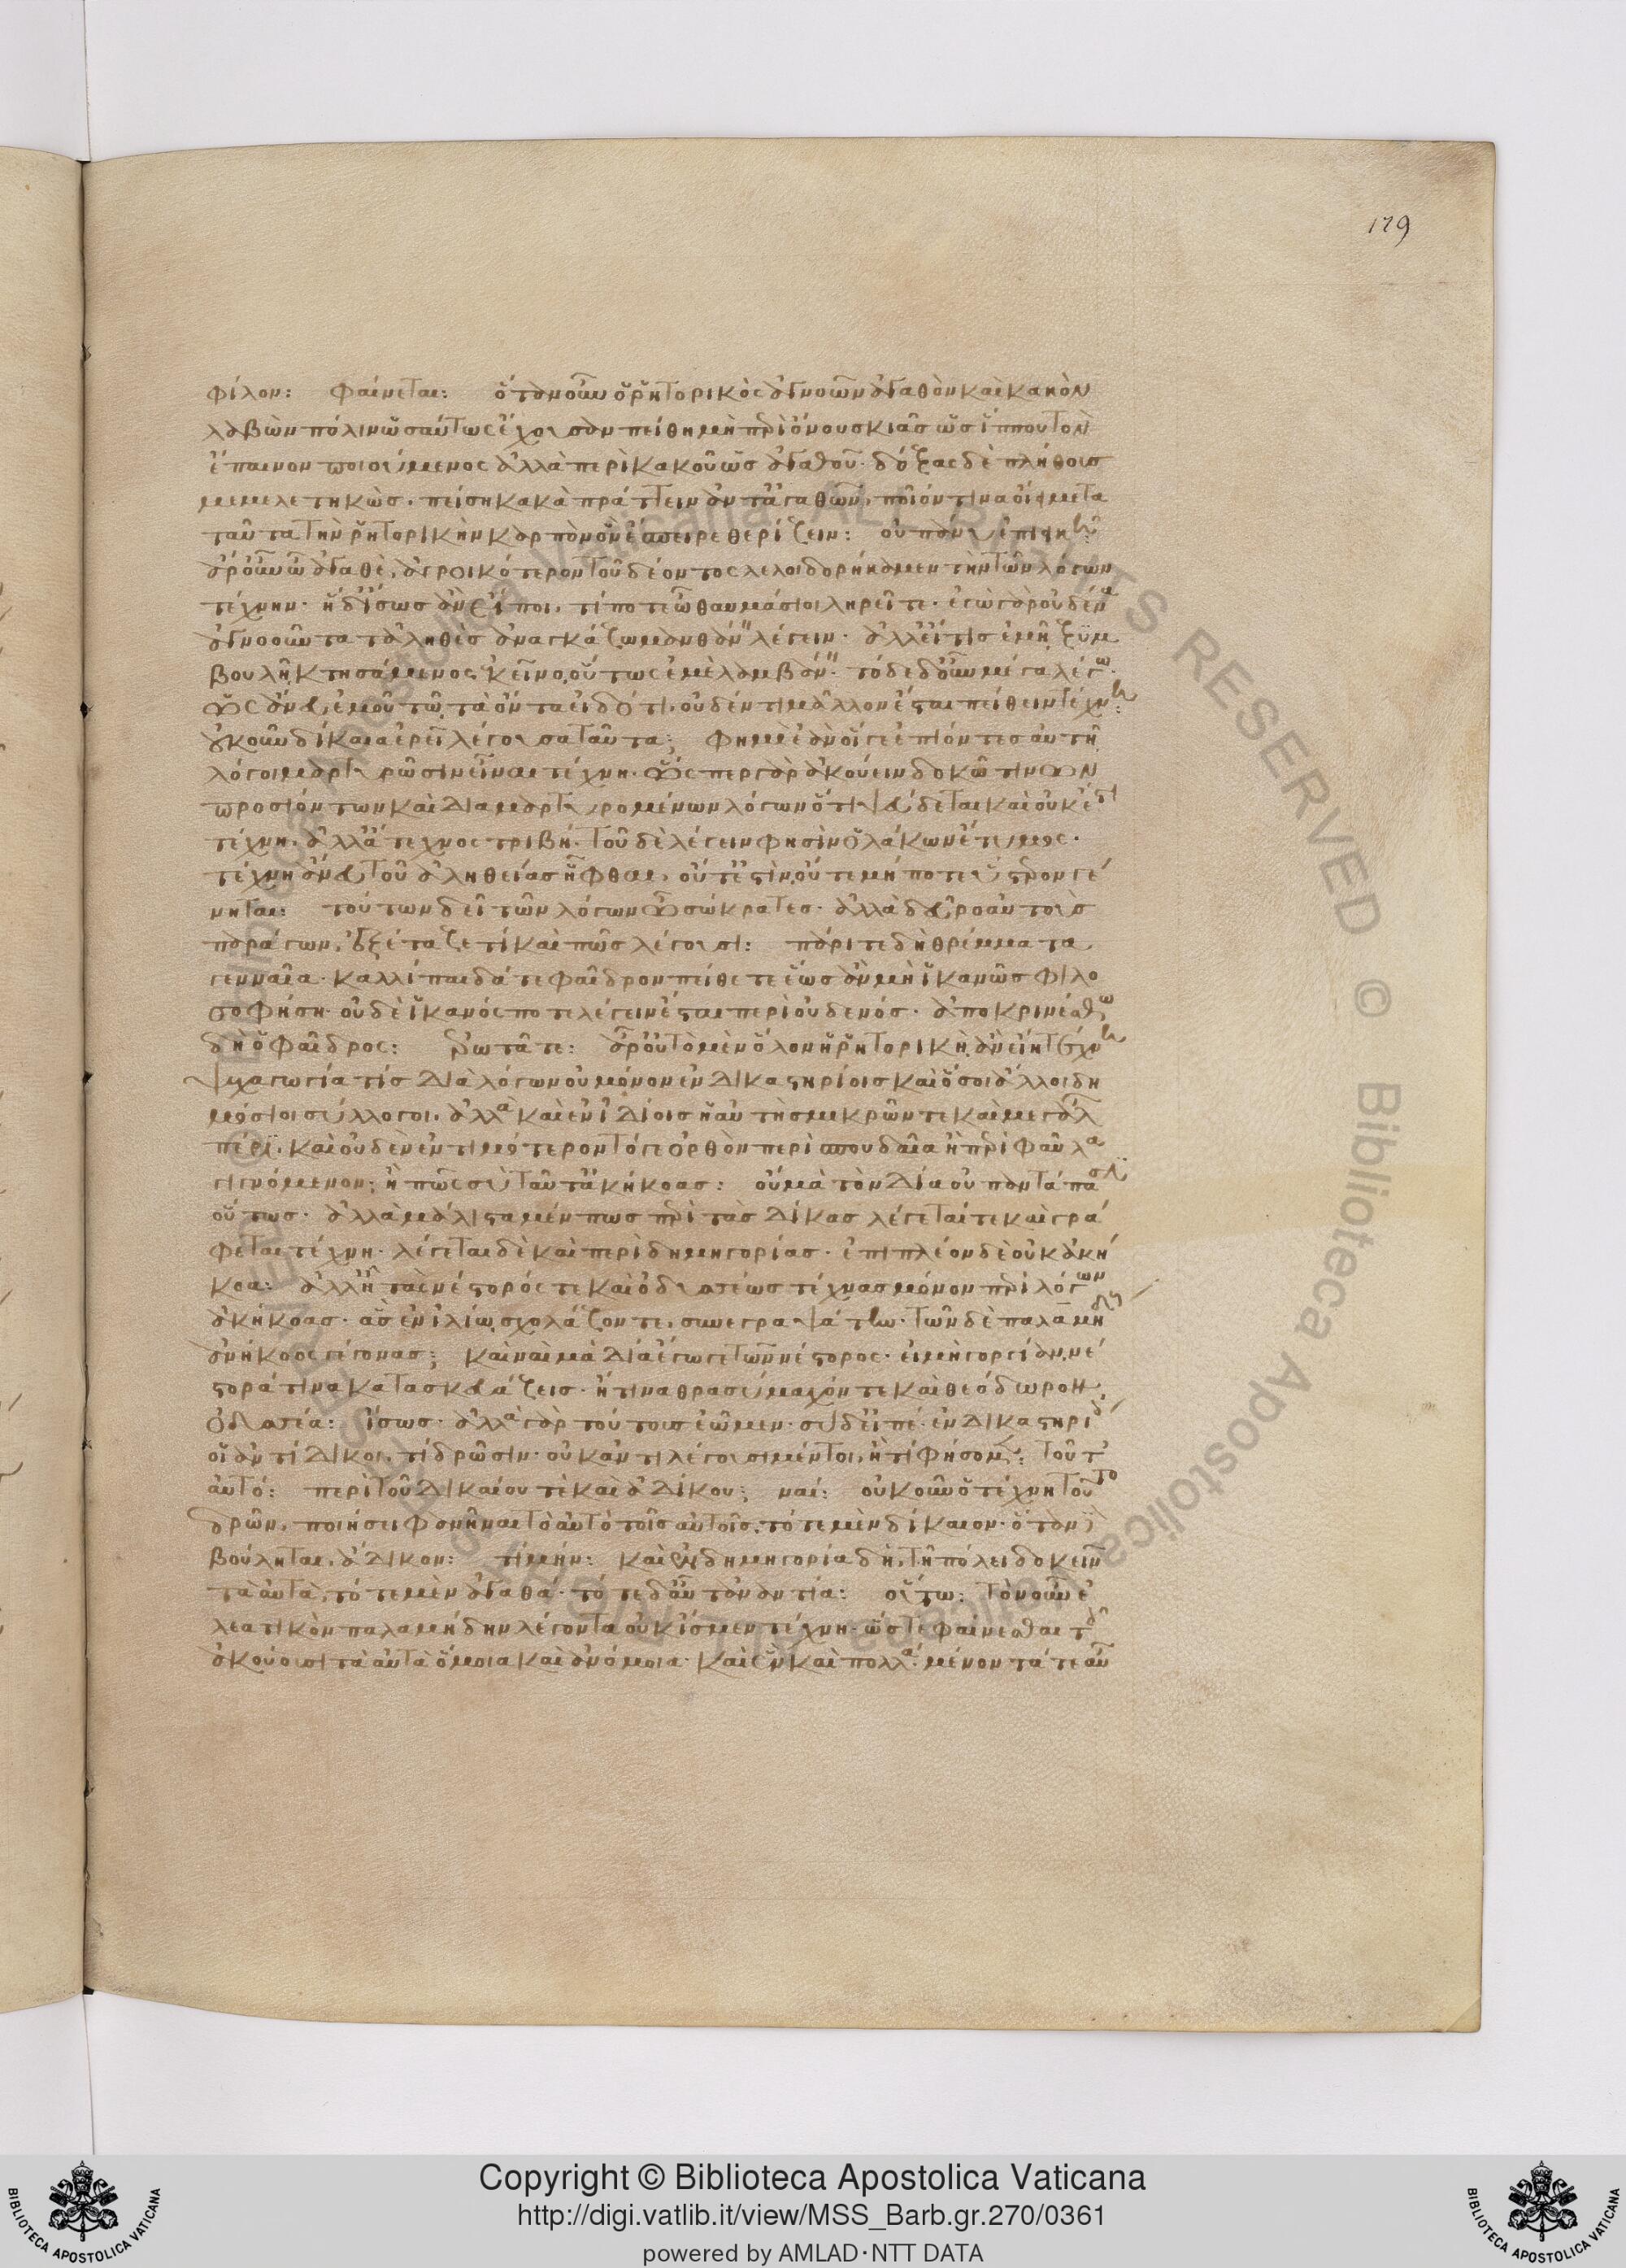 179
φίλον: φαίνεται: ὅταν οὖν ὁ ῥητορικὸς ἀγνοῶν ἀγαθὸν καὶ κακὸν
λαβὼν πόλιν ὡσαύτως ἔχουσαν πείθη μὴ περὶ ὄνου σκιᾶς ὡς ἵππου τὸν
ἔπαινον ποιούμενος ἀλλὰ περὶ κακοῦ ὡς ἀγαθοῦ· δόξας δὲ πλήθους
μεμελετηκὼς· πείση κακὰ πράττειν ἀντ' ἀγαθῶν, ποῖόν τινα οἴει μετα
ταῦτα τὴν ῥητορικὴν καρπὸν ὧν ἔσπειρε θερίζειν: οὐ πάνυ ἐπιεικῆ:
ἆρ' οὖν ὦ ἀγαθὲ, ἀγροικότερον τοῦ δέοντος λελοιδορήκαμεν τὴν τῶν λόγων
τέχνην· ἡ δ' ἴσως ἂν εἴποι, τί ποτ' ὦ θαυμάσιοι ληρεῖτε· ἐγὼ γὰρ οὐδένα
ἀγνοοῦντα τἀληθὲς ἀναγκάζω μανθάνειν λέγειν· ἀλλ' εἴ τις ἐμῆ ξυμ
βουλῆ, κτησάμενος κεῖνο, οὕτως ἐμὲ λαμβάνειν· τόδε δ' οὖν μέγα λέγω·
ὡς ἄνευ ἐμοῦ τῶ τὰ ὄντα εἰδότι, οὐδέν τι μᾶλλον ἔσται πείθειν τέχνη:
οὐκοῦν δίκαια ἐρεῖ λέγουσα ταῦτα; φημὶ ἐὰν οἵ γε ἐπιόντες αὐτῆ
λόγοι μαρτυρῶσιν εἶναι τέχνη· ὥσπερ γὰρ ἀκούειν δοκῶ τινων
προσιόντων καὶ διαμαρτυρομένων λόγων ὅτι ψεύδεται καὶ οὐκ ἔστι
τέχνη, ἀλλ' ἄτεχνος τριβή· τοῦ δὲ λέγειν φησὶν ὁ λάκων ἔτυμος·
τέχνη ἄνευ τοῦ ἀληθείας ἧφθαι, οὔτ' ἔστιν, οὔτε μή ποτε ὕστερον γέ
νηται: τούτων δεῖ τῶν λόγων ὦ σώκρατες· ἀλλὰ δεῦρο αὐτοὺς
παράγων, ἐξέταζε τί καὶ πῶς λέγουσι: πάριτε δὴ θρέμματα
γενναῖα· καλλίπαιδά τε φαῖδρον πείθετε ἕως ἂν μὴ ἱκανῶς φιλο
σοφήση· οὐδὲ ἱκανός ποτε λέγειν ἔσται περὶ οὐδενός· ἀποκρινέσθω
δὴ ὁ φαῖδρος: ἐρωτᾶτε: ἆρ' οὖ τὸ μὲν ὅλον ἡ ῥητορικὴ, ἂν εἴη τέχνη
ψυχαγωγία τίς διὰ λόγων οὐ μόνον ἐν δικαστηρίοις καὶ ὅσοι ἄλλοι δη
μόσιοι σύλλογοι, ἀλλὰ καὶ ἐν ἰδίοις ἡ αὐτὴ σμικρῶν τε καὶ μεγάλ
πέρι, καὶ οὐδὲν ἐντιμότερον τό γε ὀρθὸν περὶ σπουδαῖα ἢ περὶ φαῦλα
γιγνόμενον; ἢ πῶς σὺ ταῦτ' ἀκήκοας: οὐ μὰ τὸν Δία οὐ παντάπασιν
οὕτως· ἀλλὰ μάλιστα μέν πως περὶ τὰς δίκας λέγεταί τε καὶ γρά
φεται τέχνη· λέγεται δὲ καὶ περὶ δημηγορίας· ἐπιπλέον δὲ οὐκ ἀκή
κοα: ἀλλ' ἦ τὰς νέστορός τε καὶ ὀδυσσέως τέχνας μόνον περὶ λόγων
ἀκήκοας· ἃς ἐν ἰλίω σχολάζοντε, συνεγραψάτην· τῶν δὲ παλαμήδους
ἀνήκοος γέγονας; καὶ ναὶ μὰ Δία ἔγωγε τῶν νέστορος· εἰ μὴ γοργίαν, νέ
στορά τινα κατασκευάζεις· ἤ τινα θρασύμαχόν τε καὶ θεόδωρον,
ὀδυσσέα: ἴσως· ἀλλὰ γὰρ τούτους ἐῶμεν· σὺ δ' εἰπέ· ἐν δικαστηρί
οἱ ἀντίδικοι, τί δρῶσιν· οὐκ ἀντιλέγουσι μέντοι, ἢ τί φήσομεν: τοῦτ'
αὐτό: περὶ τοῦ δικαίου τὲ καὶ ἀδίκου; ναί: οὐκοῦν ὁ τέχνη τοῦτο
δρῶν, ποιήσει φανῆναι τὸ αὐτὸ τοῖς αὐτοῖς, τότε μὲν δίκαιον· ὅταν δὲ
βούληται, ἄδικον: τί μήν: καὶ ἐν δημηγορία δὴ, τῆ πόλει δοκεῖν
τὰ αὐτὰ, τότε μὲν ἀγαθά· τότε δ' αὖ τἀναντία: οὕτω: τὸν οὖν ἐ
λεατικὸν παλαμήδην λέγοντα οὐκ ἴσμεν τέχνη· ὥστε φαίνεσθαι τοῖς
ἀκούουσι τὰ αὐτὰ ὅμοια καὶ ἀνόμοια· καὶ ἓν καὶ πολλά· μένοντά τε αὖ
Copyright © Biblioteca Apostolica Vaticana
http://digi.vatlib.it/view/MSS_Barb.gr.270/0361
powered by AMLAD·NTT DATA